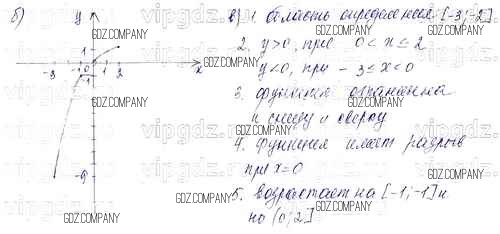 б)
y
в) 1. область определения [-3; -2]
2. y>0, при 0 < x ≤ 2
y<0, при -3 ≤ x < 0
3. функция ограничена
и снизу и сверху
4. функция имеет разрыв
при x=0
5. возрастает на [-1; -1] и
на (0; 2]
-3 -1 0 1 2 x
1
-1
GDZ.COMPANY
vipgdz.ru